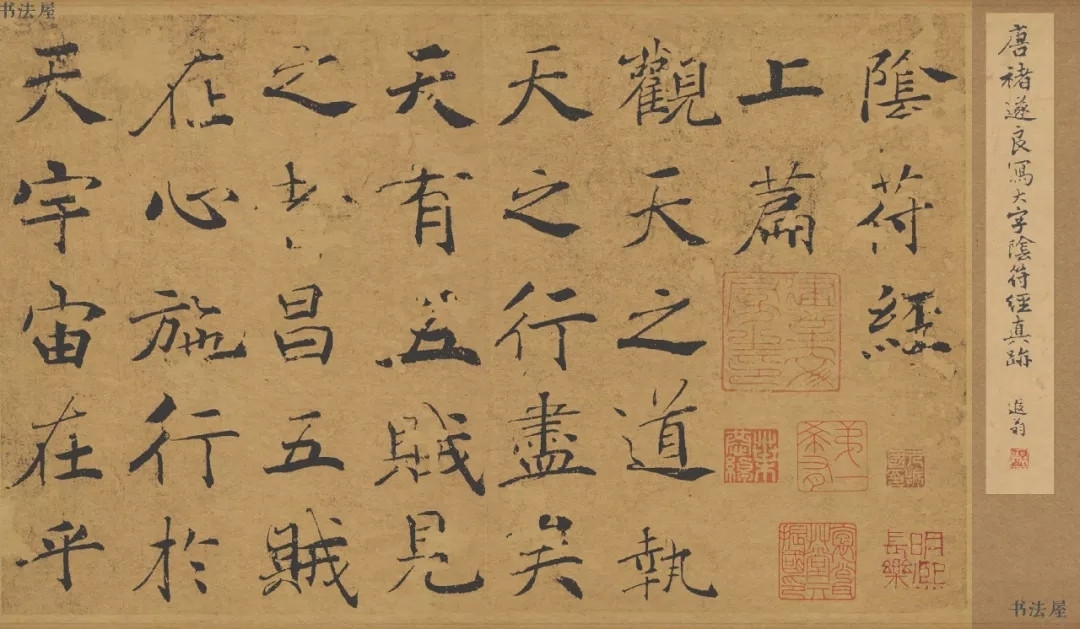 书法屋
唐褚遂良寫大字陰符經真跡
遐翁
陰符經
上篇
觀天之道執
天之行盡矣
天有五賊見
之者昌五賊
在心施行於
天宇宙在乎
书法屋